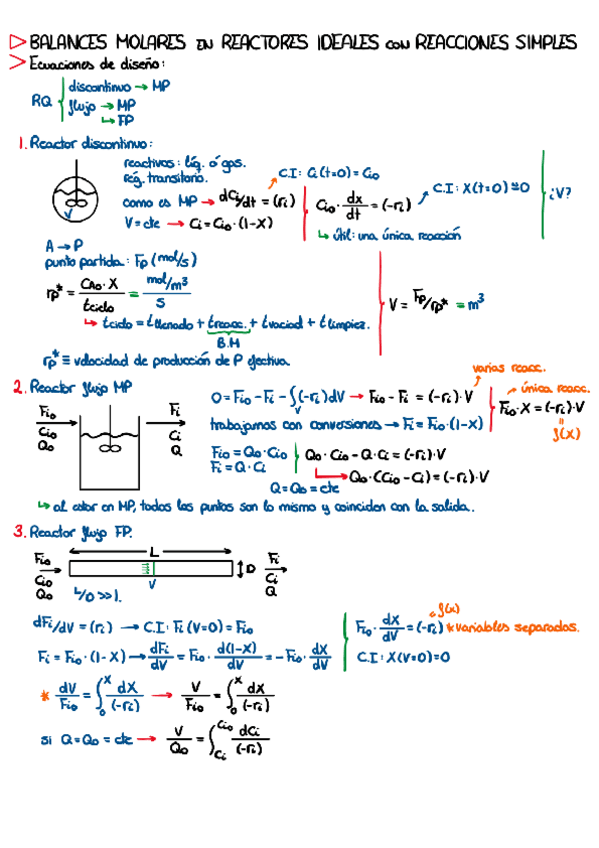 BALANCES MOLARES EN REACTORES IDEALES CON REACCIONES SIMPLES
Ecuaciones de diseño:
RQ { discontinuo → MP
flujo → MP
↳ FP
1. Reactor discontinuo:
reactivos: líq. ó gas.
Rég. transitorio.
como es MP → dCi/dt = (ri)
C.I: Ci(t=0) = Cio
V = cte → Ci = Cio·(1-X)
Cio· dx/dt = (-ri)
C.I: X(t=0) = 0
¿V?
↳ útil: una única reacción
V
A → P
punto partida: Fp (mol/s)
rp* = CAo·X / tciclo = mol/m³ / s
↳ tciclo = tllenado + treacc. + tvaciad + tlimpiez.
B.M
V = Fp/rp* = m³
rp* ≡ velocidad de producción de P efectiva.
2. Reactor flujo MP
Fio Cio Qo
Fi Ci Q
V
0 = Fio - Fi - ∫(-ri)dV → Fio - Fi = (-ri)·V
V
varias reacc.
única reacc.
Fio·X = (-ri)·V
f(X)
trabajamos con conversiones → Fi = Fio·(1-X)
Fio = Qo·Cio
Fi = Q·Ci
Qo·Cio - Q·Ci = (-ri)·V
Qo·(Cio - Ci) = (-ri)·V
Q = Qo = cte
↳ al estar en MP, todos los puntos son lo mismo y coinciden con la salida.
3. Reactor flujo FP.
Fio Cio Qo
L
D
V
Fi Ci Q
L/D >> 1.
dFi/dV = (ri) → C.I: Fi (V=0) = Fio
Fi = Fio·(1-X) → dFi/dV = Fio· d(1-X)/dV = -Fio· dX/dV
Fio· dX/dV = (-ri) * variables separadas.
f(x)
C.I: X(V=0) = 0
* dV/Fio = ∫₀ˣ dX/(-ri) → V/Fio = ∫₀ˣ dX/(-ri)
si Q = Qo = cte → V/Qo = ∫ Ci Cio dCi/(-ri)